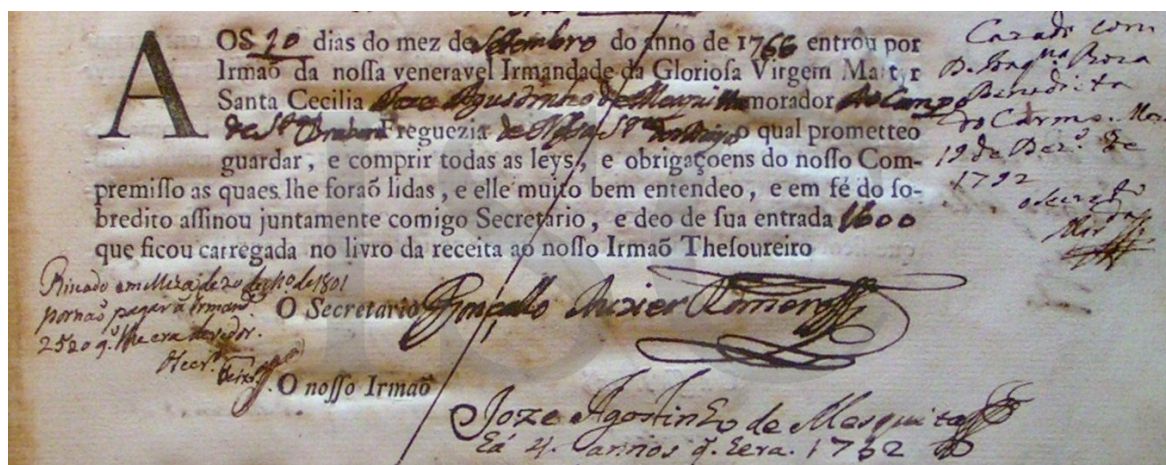 AOS 20 dias do mez de Setembro do anno de 1766 entrou por
Irmaõ da noſſa veneravel Irmandade da Glorioſa Virgem Martyr
Santa Cecilia Joze Agustinho de Mesquitta morador ao Campo
de Sta Freguezia de o qual prometteo
guardar, e comprir todas as leys, e obrigaçoens do noſſo Com-
premiſſo as quaes lhe foraõ lidas, e elle muito bem entendeo, e em fé do ſo-
bredito aſſinou juntamente comigo Secretario, e deo de ſua entrada 1600
que ficou carregada no livro da receita ao noſſo Irmaõ Theſoureiro
O Secretario Gonçallo Auxier Romero
O noſſo Irmaõ
Joze Agostinho de Mesquita
4. annos q. era. 1732
Cazado com
D. Joaqna Roza
Benedicta
do Carmo.
19 de Dezo. de
1792
Riscado em Meza de 20 de de 1801
por naõ pagar a Irmande
2520 q. lhe era devedor.